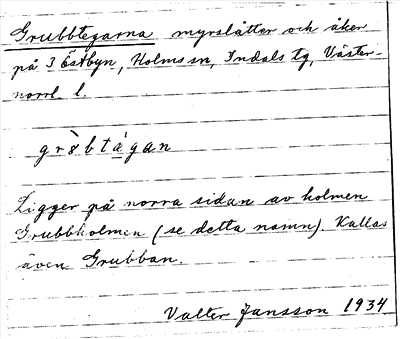 Grubbtegarna myrslåtter och åker
på 3 Östbyn, Holms sn, Indals tg, Väster-
norrl. l.
gr8̀btá̱gan
Ligger på norra sidan av holmen
Grubbholmen (se detta namn). Kallas
även Grubban.
Valter Jansson 1934